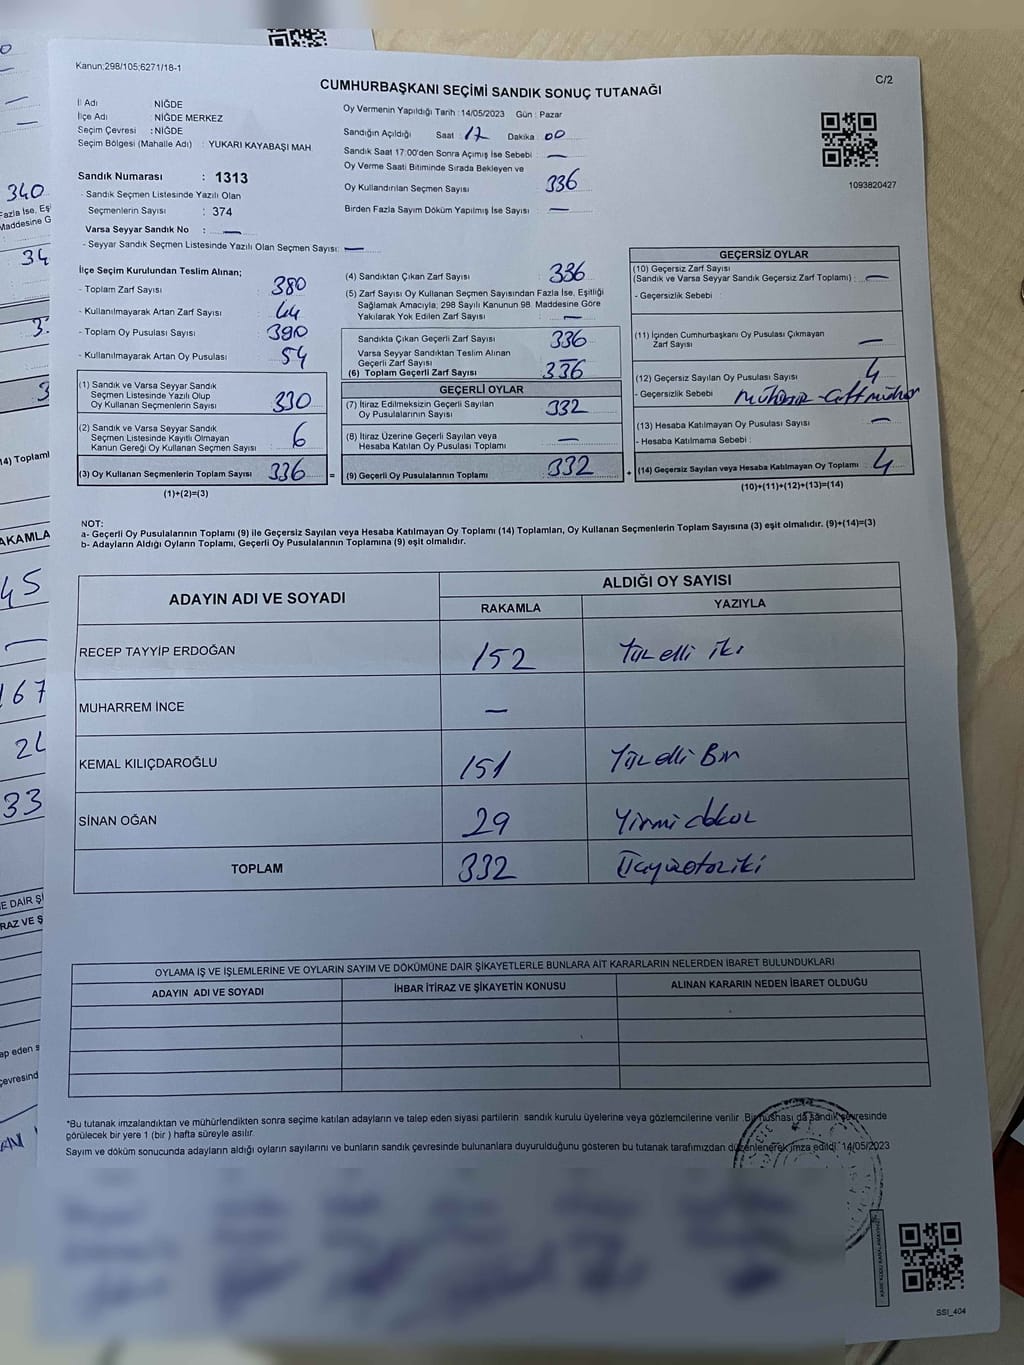 Kanun;298/105;6271/18-1
CUMHURBAŞKANI SEÇİMİ SANDIK SONUÇ TUTANAĞI
C/2
İl Adı NİĞDE
İlçe Adı NİĞDE MERKEZ
Seçim Çevresi : NİĞDE
Seçim Bölgesi (Mahalle Adı) : YUKARI KAYABAŞI MAH
Sandık Numarası : 1313
- Sandık Seçmen Listesinde Yazılı Olan
Seçmenlerin Sayısı : 374
Varsa Seyyar Sandık No : —
- Seyyar Sandık Seçmen Listesinde Yazılı Olan Seçmen Sayısı: —
Oy Vermenin Yapıldığı Tarih : 14/05/2023 Gün : Pazar
Sandığın Açıldığı Saat : 17 Dakika : 00
Sandık Saat 17:00'den Sonra Açımış İse Sebebi : —
Oy Verme Saati Bitiminde Sırada Bekleyen ve
Oy Kullandırılan Seçmen Sayısı 336
Birden Fazla Sayım Döküm Yapılmış İse Sayısı : —
1093820427
İlçe Seçim Kurulundan Teslim Alınan;
- Toplam Zarf Sayısı : 380
- Kullanılmayarak Artan Zarf Sayısı : 44
- Toplam Oy Pusulası Sayısı : 390
- Kullanılmayarak Artan Oy Pusulası : 54
(1) Sandık ve Varsa Seyyar Sandık
Seçmen Listesinde Yazılı Olup
Oy Kullanan Seçmenlerin Sayısı : 330
(2) Sandık ve Varsa Seyyar Sandık
Seçmen Listesinde Kayıtlı Olmayan
Kanun Gereği Oy Kullanan Seçmen Sayısı : 6
(3) Oy Kullanan Seçmenlerin Toplam Sayısı : 336 =
(1)+(2)=(3)
(4) Sandıktan Çıkan Zarf Sayısı : 336
(5) Zarf Sayısı Oy Kullanan Seçmen Sayısından Fazla İse, Eşitliği
Sağlamak Amacıyla, 298 Sayılı Kanunun 98. Maddesine Göre
Yakılarak Yok Edilen Zarf Sayısı : —
Sandıkta Çıkan Geçerli Zarf Sayısı : 336
Varsa Seyyar Sandıktan Teslim Alınan
Geçerli Zarf Sayısı :
(6) Toplam Geçerli Zarf Sayısı : 336
GEÇERLİ OYLAR
(7) İtiraz Edilmeksizin Geçerli Sayılan
Oy Pusulalarının Sayısı : 332
(8) İtiraz Üzerine Geçerli Sayılan veya
Hesaba Katılan Oy Pusulası Toplamı : —
(9) Geçerli Oy Pusulalarının Toplamı : 332 +
GEÇERSİZ OYLAR
(10) Geçersiz Zarf Sayısı
(Sandık ve Varsa Seyyar Sandık Geçersiz Zarf Toplamı) : —
- Geçersizlik Sebebi :
(11) İçinden Cumhurbaşkanı Oy Pusulası Çıkmayan
Zarf Sayısı : —
(12) Geçersiz Sayılan Oy Pusulası Sayısı : 4
- Geçersizlik Sebebi :
(13) Hesaba Katılmayan Oy Pusulası Sayısı : —
- Hesaba Katılmama Sebebi :
(14) Geçersiz Sayılan veya Hesaba Katılmayan Oy Toplamı : 4
(10)+(11)+(12)+(13)=(14)
NOT:
a- Geçerli Oy Pusulalarının Toplamı (9) ile Geçersiz Sayılan veya Hesaba Katılmayan Oy Toplamı (14) Toplamları, Oy Kullanan Seçmenlerin Toplam Sayısına (3) eşit olmalıdır. (9)+(14)=(3)
b- Adayların Aldığı Oyların Toplamı, Geçerli Oy Pusulalarının Toplamına (9) eşit olmalıdır.
ADAYIN ADI VE SOYADI ALDIĞI OY SAYISI
RAKAMLA YAZIYLA
RECEP TAYYİP ERDOĞAN 152 Yüz elli iki
MUHARREM İNCE —
KEMAL KILIÇDAROĞLU 151 Yüz elli Bir
SİNAN OĞAN 29 Yirmi dokuz
TOPLAM 332 Üçyüzotuziki
OYLAMA İŞ VE İŞLEMLERİNE VE OYLARIN SAYIM VE DÖKÜMÜNE DAİR ŞİKAYETLERLE BUNLARA AİT KARARLARIN NELERDEN İBARET BULUNDUKLARI
ADAYIN ADI VE SOYADI İHBAR İTİRAZ VE ŞİKAYETİN KONUSU ALINAN KARARIN NEDEN İBARET OLDUĞU
*Bu tutanak imzalandıktan ve mühürlendikten sonra seçime katılan adayların ve talep eden siyasi partilerin sandık kurulu üyelerine veya gözlemcilerine verilir. Bir nüshası da sandık çevresinde
görülecek bir yere 1 (bir) hafta süreyle asılır.
Sayım ve döküm sonucunda adayların aldığı oyların sayılarını ve bunların sandık çevresinde bulunanlara duyurulduğunu gösteren bu tutanak tarafımızdan düzenlenerek imza edildi. 14/05/2023
SSI_404